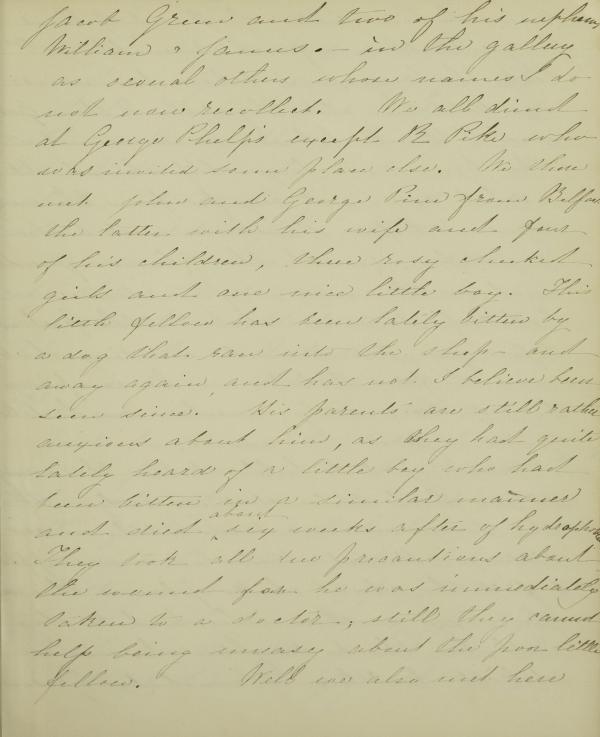 Jacob Green and two of his nephews,
William & James. – in the gallery
as several others whose names I do
not now recollect. We all dined
at George Phelps except R Pike who
was invited some place else. We there
met John and George Pim from Belfast
the latter with his wife and four
of his children, three rosy cheeked
girls and one nice little boy. This
little fellow has been lately bitten by
a dog that ran into the shop – and
away again, and has not I believe been
seen since. His parents are still rather
anxious about him, as they had quite
lately heard of a little boy who had
been bitten in a similar manner
about
and died ‸ six weeks after of hydrophobia
They took all due precautions about
the wound for he was immediately
taken to a doctor; still they cannot
help being uneasy about the poor little
fellow. Well we also met here